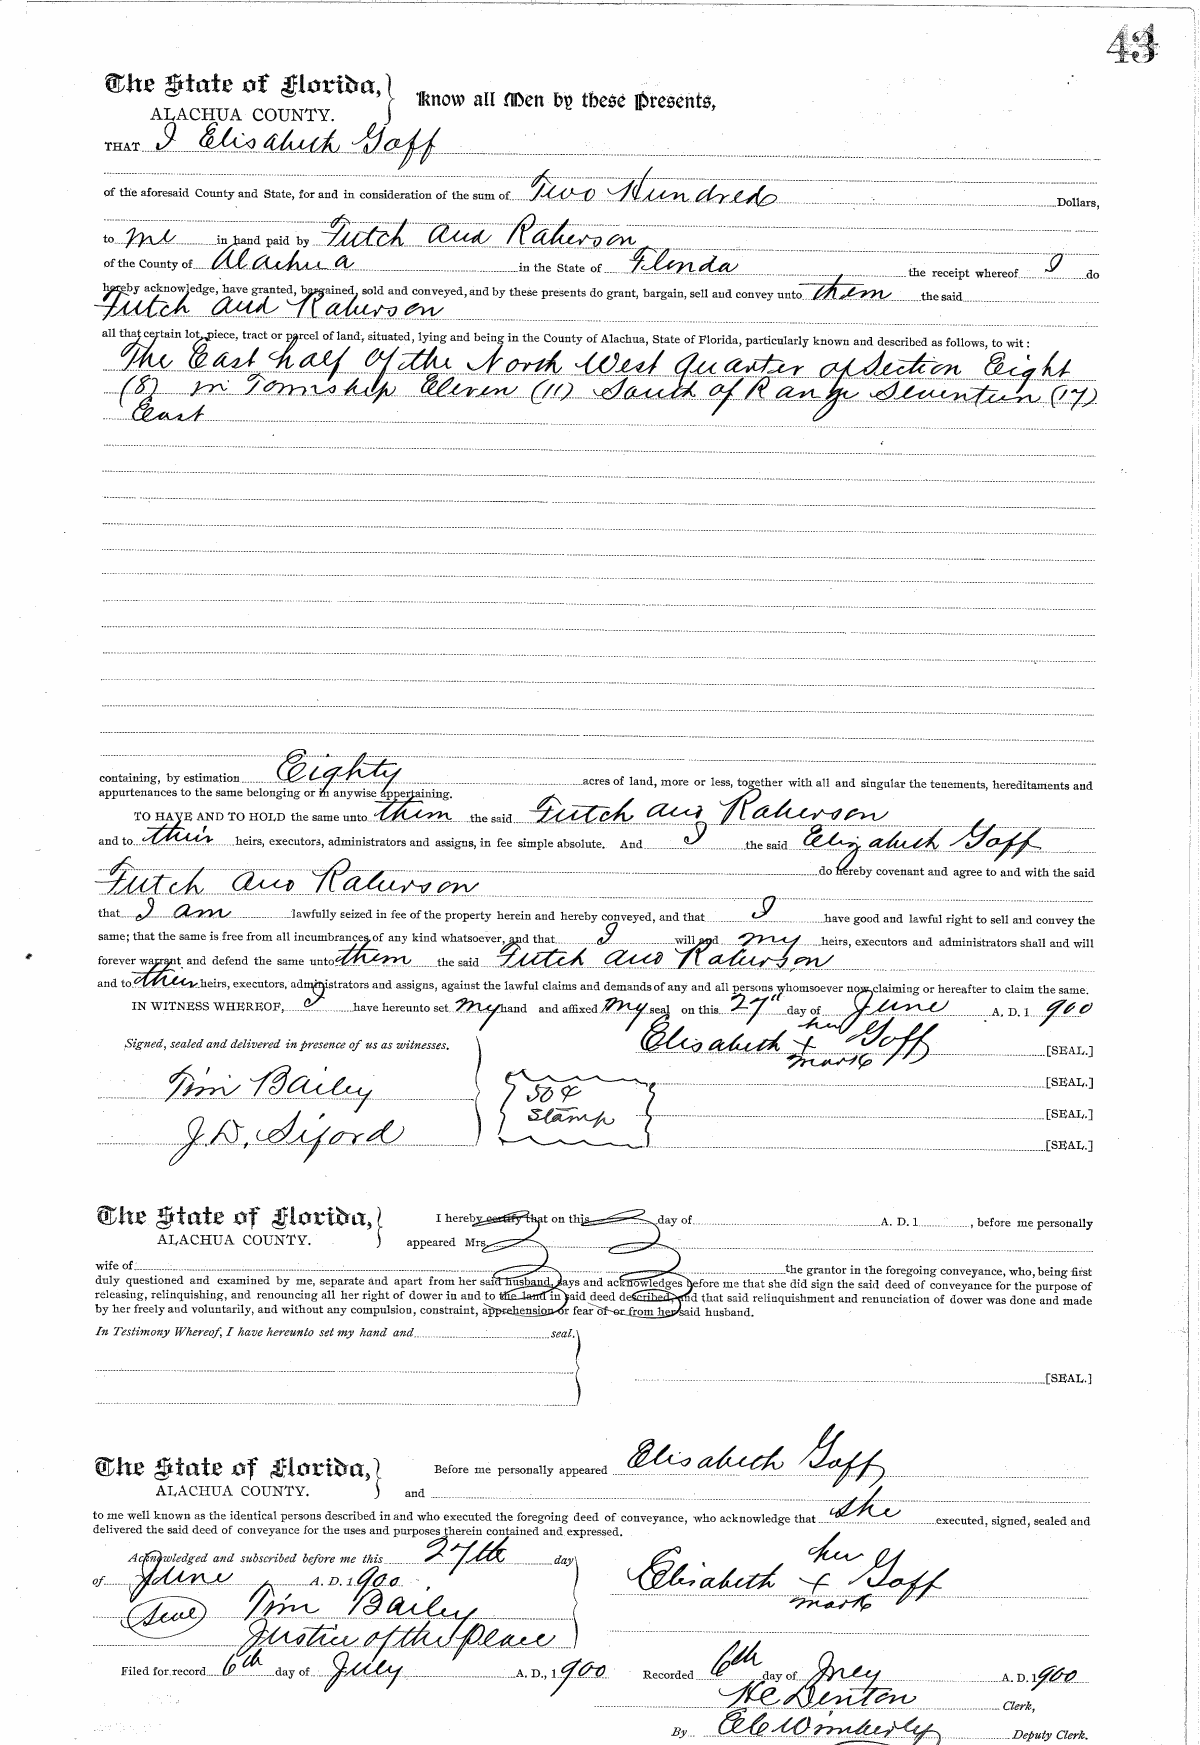 43
The State of Florida, } Know all Men by these Presents,
ALACHUA COUNTY.
THAT I Elisabeth Goff
of the aforesaid County and State, for and in consideration of the sum of Two Hundred Dollars,
to me in hand paid by Futch and Raherson
of the County of Alachua in the State of Florida the receipt whereof I do
hereby acknowledge, have granted, bargained, sold and conveyed, and by these presents do grant, bargain, sell and convey unto them the said
Futch and Raherson
all that certain lot, piece, tract or parcel of land, situated, lying and being in the County of Alachua, State of Florida, particularly known and described as follows, to wit:
The East half of the North West Quarter of Section Eight
(8) in Township Eleven (11) South of Range Seventeen (17)
East
containing, by estimation Eighty acres of land, more or less, together with all and singular the tenements, hereditaments and
appurtenances to the same belonging or in anywise appertaining.
TO HAVE AND TO HOLD the same unto them the said Futch and Raherson
and to their heirs, executors, administrators and assigns, in fee simple absolute. And I the said Elizabeth Goff
do hereby covenant and agree to and with the said
Futch and Raherson
that I am lawfully seized in fee of the property herein and hereby conveyed, and that I have good and lawful right to sell and convey the
same; that the same is free from all incumbrances of any kind whatsoever, and that I will and my heirs, executors and administrators shall and will
forever warrant and defend the same unto them the said Futch and Raherson
and to their heirs, executors, administrators and assigns, against the lawful claims and demands of any and all persons whomsoever now claiming or hereafter to claim the same.
IN WITNESS WHEREOF, I have hereunto set my hand and affixed my seal on this 27th day of June A. D. 1900
her
Signed, sealed and delivered in presence of us as witnesses. Elisabeth + Goff [SEAL.]
mark
Tim Bailey 50¢ [SEAL.]
Stamp [SEAL.]
J.D. Siford [SEAL.]
The State of Florida, } I hereby certify that on this day of A. D. 1 , before me personally
ALACHUA COUNTY. appeared Mrs.
wife of the grantor in the foregoing conveyance, who, being first
duly questioned and examined by me, separate and apart from her said husband, says and acknowledges before me that she did sign the said deed of conveyance for the purpose of
releasing, relinquishing, and renouncing all her right of dower in and to the land in said deed described, and that said relinquishment and renunciation of dower was done and made
by her freely and voluntarily, and without any compulsion, constraint, apprehension or fear of or from her said husband.
In Testimony Whereof, I have hereunto set my hand and seal.
[SEAL.]
The State of Florida, } Before me personally appeared Elisabeth Goff
ALACHUA COUNTY. and
to me well known as the identical persons described in and who executed the foregoing deed of conveyance, who acknowledge that she executed, signed, sealed and
delivered the said deed of conveyance for the uses and purposes therein contained and expressed.
Acknowledged and subscribed before me this 27th day her
of June A. D. 1900. Elisabeth + Goff
mark
(Seal) Tim Bailey
Justice of the Peace
Filed for record 6th day of July A. D., 1900 Recorded 6th day of July A. D. 1900
H C Denton Clerk,
By E C Wimberly Deputy Clerk.